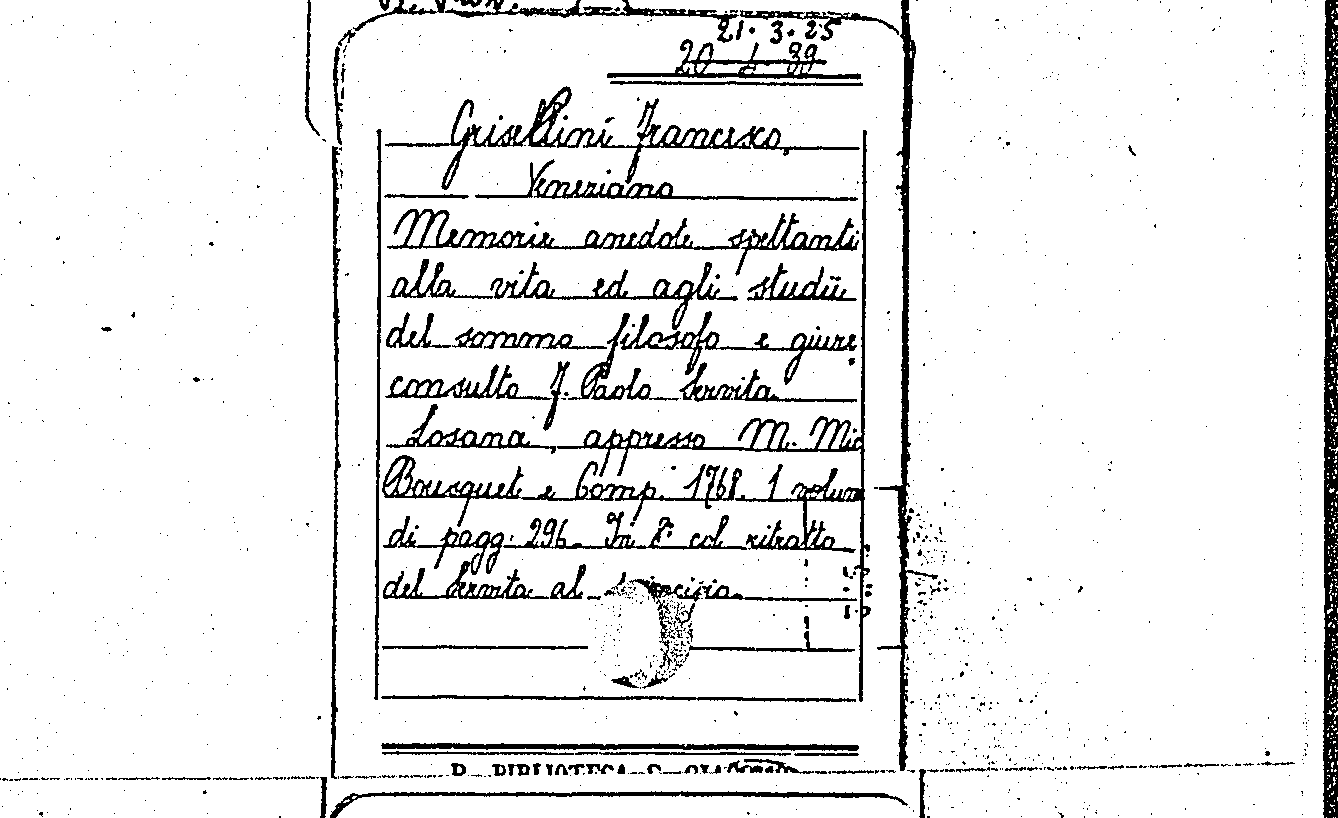 21. 3. 25
20 4 39
Grisellini Francesco,
Veneziano
Memorie anedote spettanti
alla vita ed agli studii
del sommo filosofo e giure
consulto F. Paolo Servita.
Losana, appresso M. Mic
Bousquet e Comp. 1768. 1 volum
di pagg. 296. In 8° col ritratto
del Servita al principio.
BIBLIOTECA S. GIACOMO